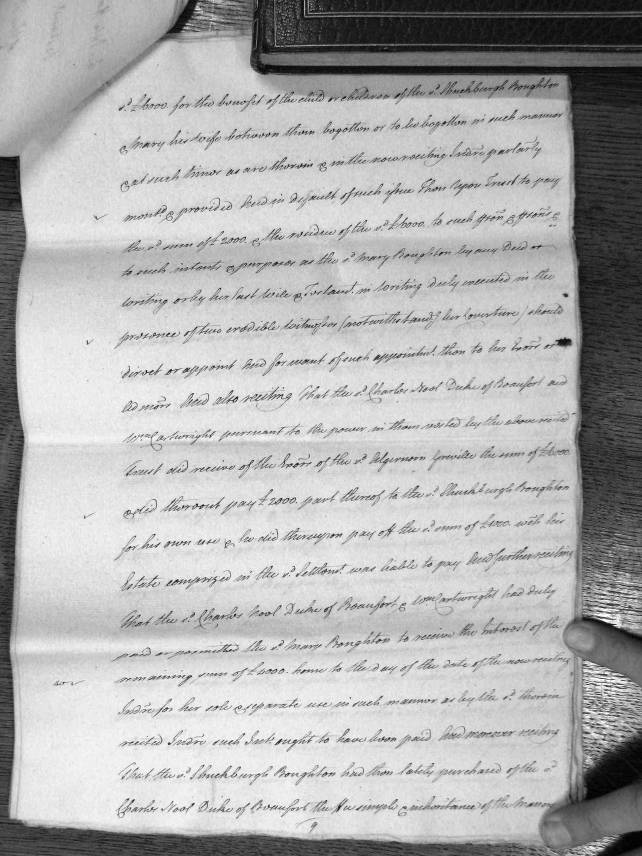 sd. £6000 for the benefit of the child or children of the sd. Shuckburgh Boughton
& Mary his wife between them begotten or to be begotten in such manner
& at such times as are therein & in the now reciting Indre. parlarly
montd. & provided And in default of such issue Then Upon Trust to pay
the sd. sum of £2000 & the residue of the sd. £6000 to such pson & psons &
to such intents & purposes as the sd. Mary Boughton by any Deed or
Writing or by her last Will & Testamt. in Writing duly executed in the
presence of two credible Witnesses (notwithstandg. her Coverture) should
direct or appoint And for want of such appointmt. then to her Exors or
Admors. And also reciting That the sd. Charles Noel Duke of Beaufort and
Wm. Cartwright pursuant to the power in them vested by the above recited
Trust did receive of the Exors of the sd. Algernon Greville the sum of £6000
& did thereout pay £2000 part thereof to the sd. Shuckburgh Boughton
for his own use & he did thereupon pay off the sd. sum of wch. his
Estate comprized in the sd. Settlemt. was liable to pay And further reciting
That the sd. Charles Noel Duke of Beaufort & Wm. Cartwright had duly
paid or permitted the sd. Mary Boughton to receive the Interest of the
remaining sum of £4000 home to the day of the date of the now reciting
Indre for her sole & separate use in such manner as by the sd. therein
recited Indre such Intt. ought to have been paid And moreover reciting
That the sd. Shuckburgh Boughton had then lately purchased of the sd.
Charles Noel Duke of Beaufort the Fee simple & inheritance of the Manor
9